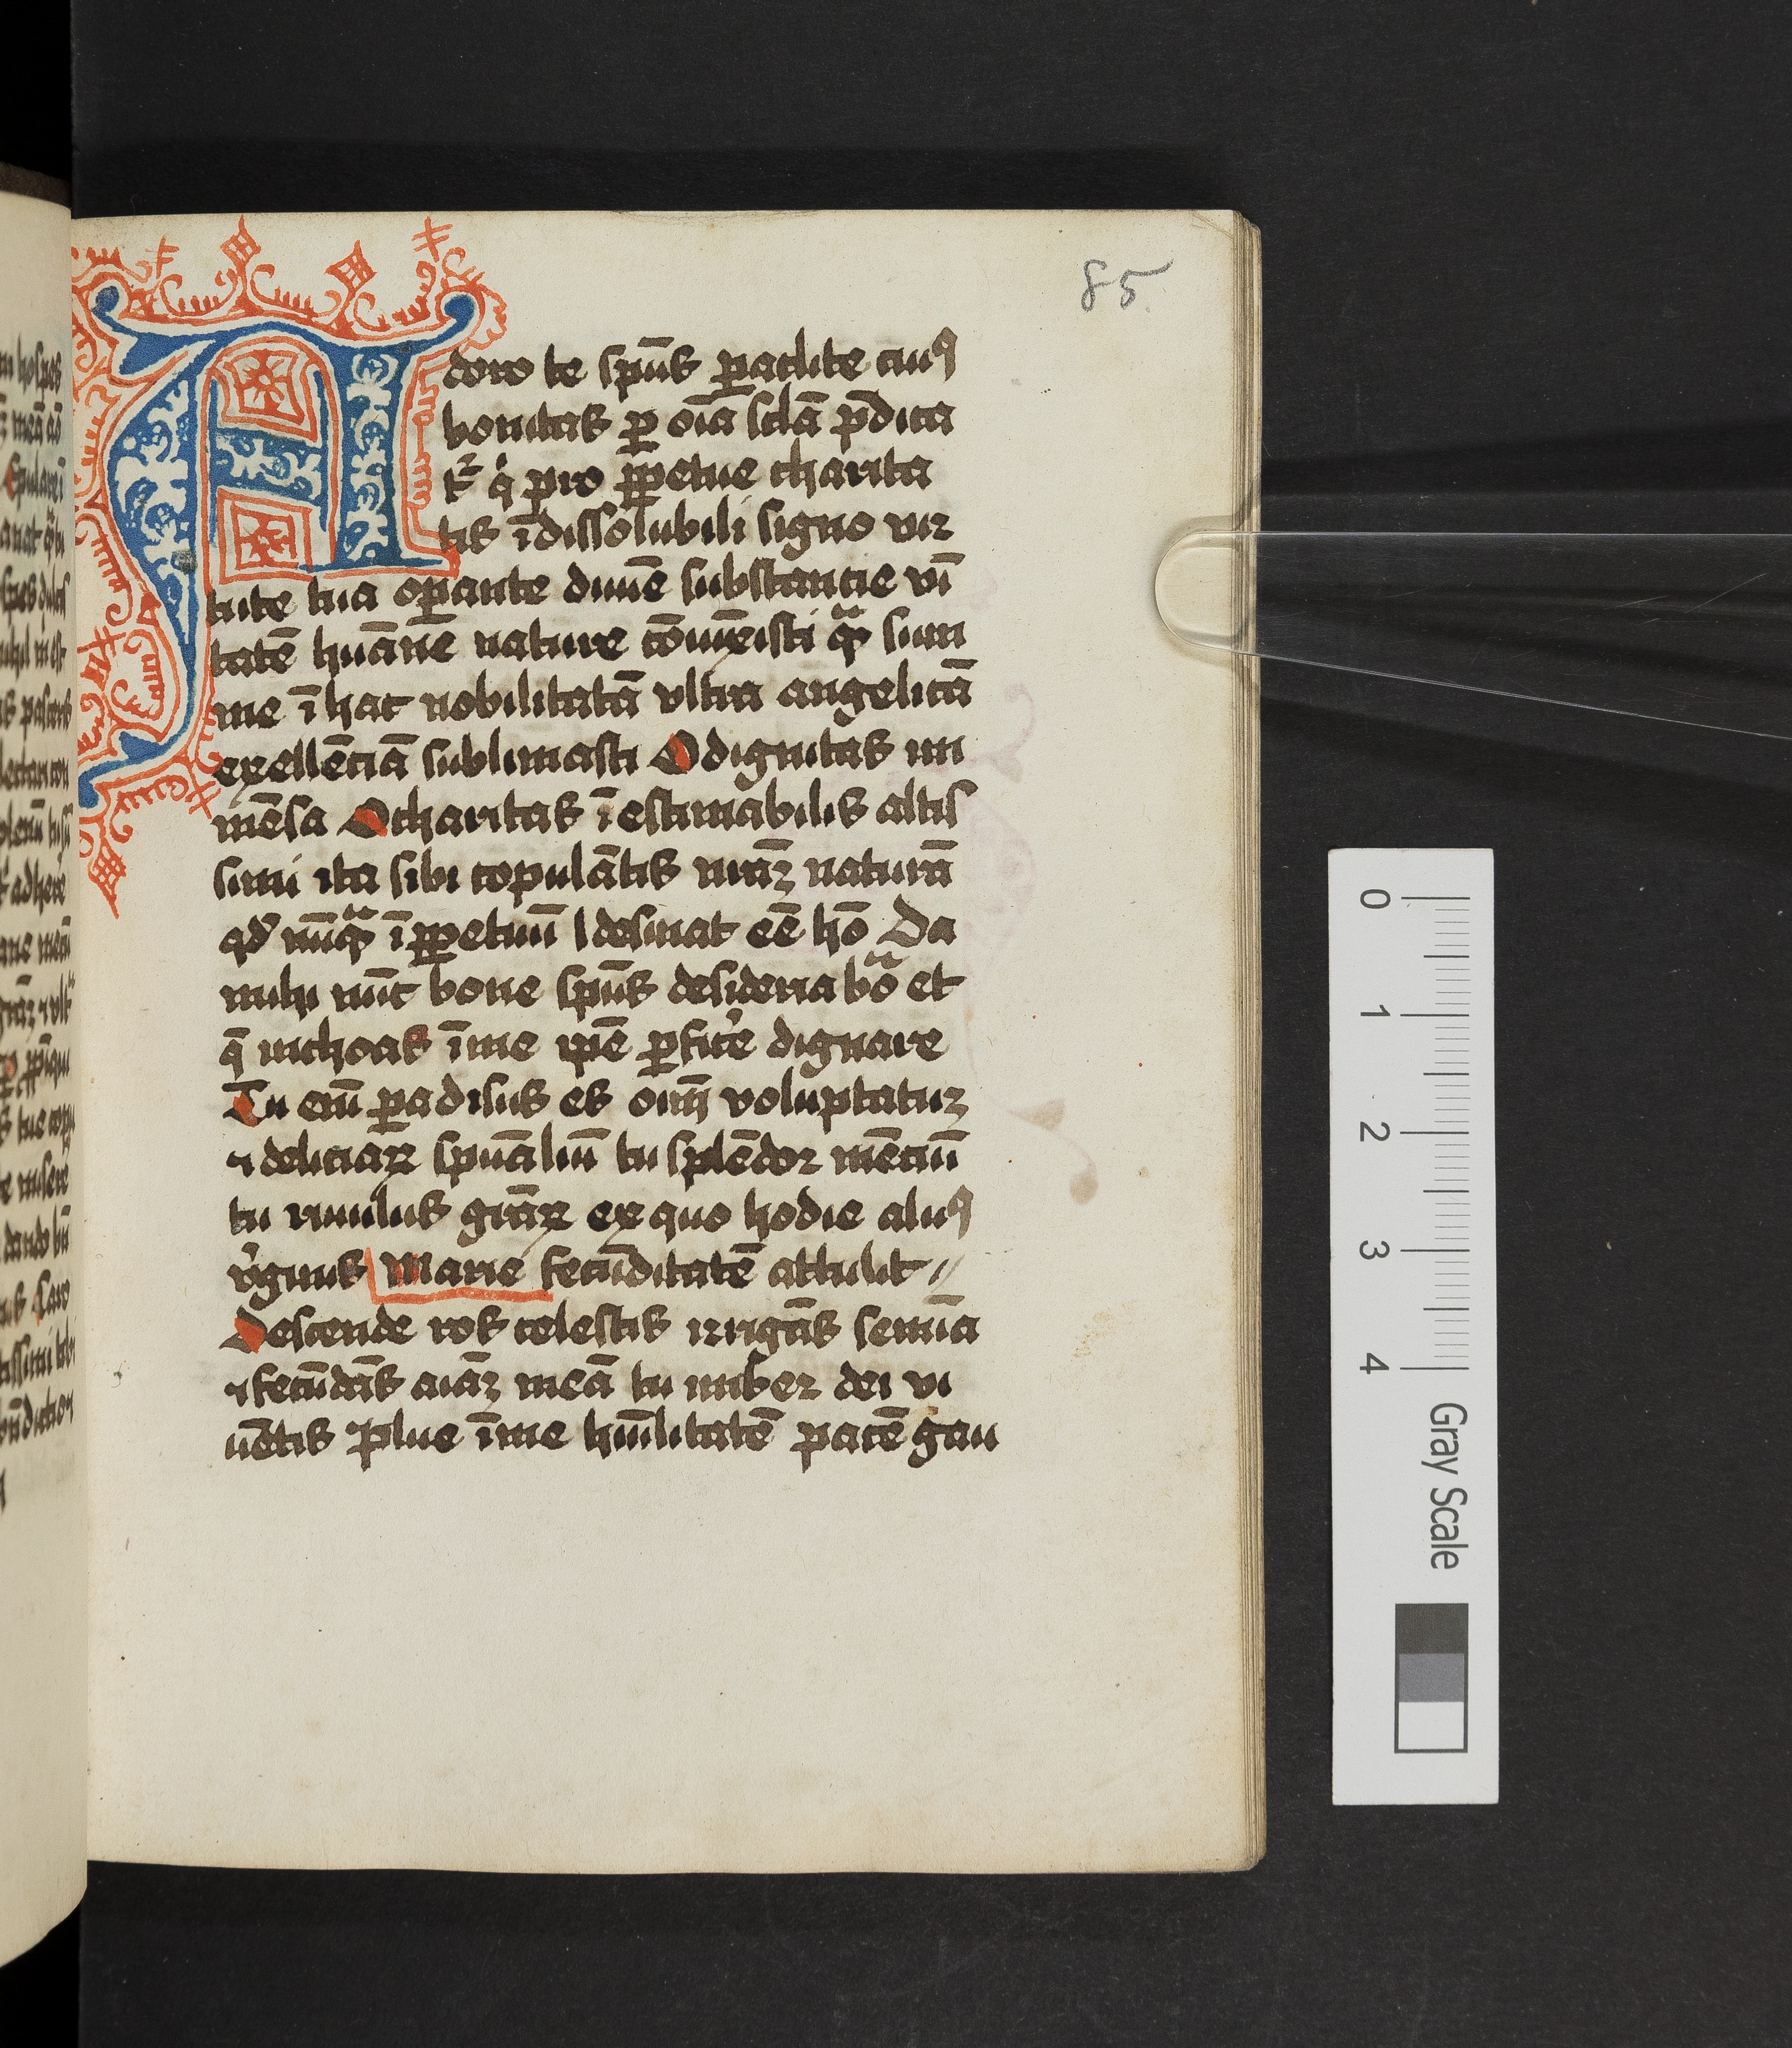 85.
Adoro te spūs ꝑaclite cuiꝰ
bonitas ꝑ oīa sclā p̄dica
t᷑ q̇ pro ꝑpetue charita
tis īdissolubili signo vir
tute tua oꝑante diuīē substancie vī
tatē huānē nature cōiu̅xisti qᷓꝫ sum
me ī hac nobilitatā vltra angelicā
exellēciā sublimasti O dignitas im
mēsa O charitas īestimabilis altis
simi ita sibi copulātis nr̄aꝫ naturā
qd̓ nūqᷓꝫ ī ꝑpetuū desinat eē hō Da
mihi nūc bone spūs desideria boᷓ et
q̄ inchoas ī me ip̄e ꝑfic̓e dignare
Tu em̄ ꝑadisus es oīm̄ voluptatuꝫ
⁊ deliciaꝝ spūaliū tu splēdor mēciū
tu riuulus gr̄aꝝ ex quo hodie aluꝰ
v̓ginis Marie fecūditatē attulit //
Descende ros celestis irrigās semīa
⁊ fecūdās aīaꝫ meā tu imber dei vi
uētis plue ī me hūilitatē pacē gau
0 1 2 3 4
Gray Scale